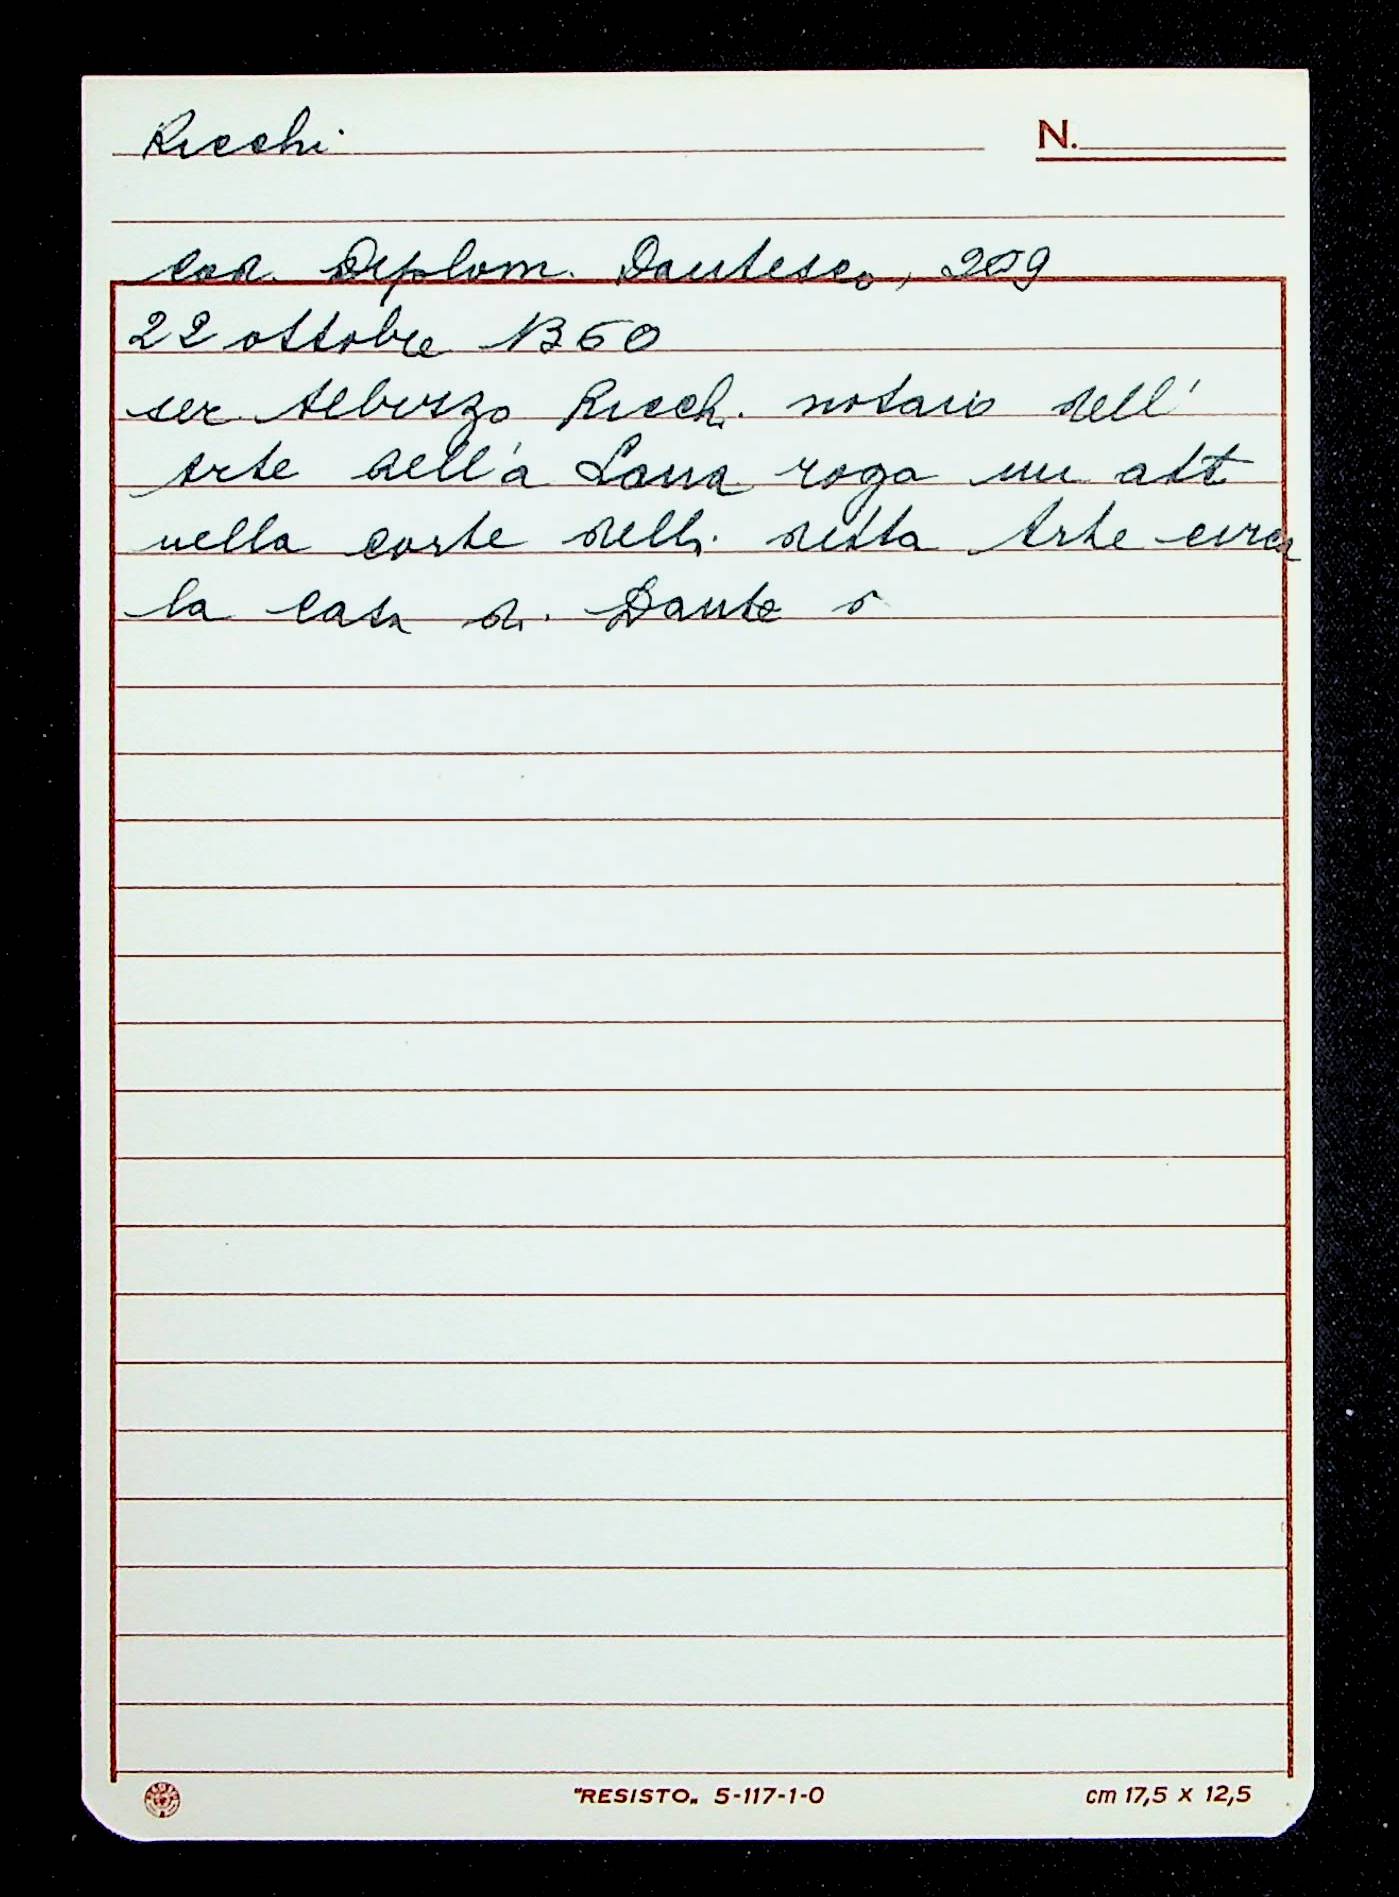 Ricchi
N.
Cod. Diplom. Dantesco, 209
22 ottobre 1360
ser Albizzo Ricchi notaio dell'
Arte dell'a Lana roga un att
nella corte della detta Arte circa
la casa di Dante
"RESISTO„ 5-117-1-0
cm 17,5 x 12,5